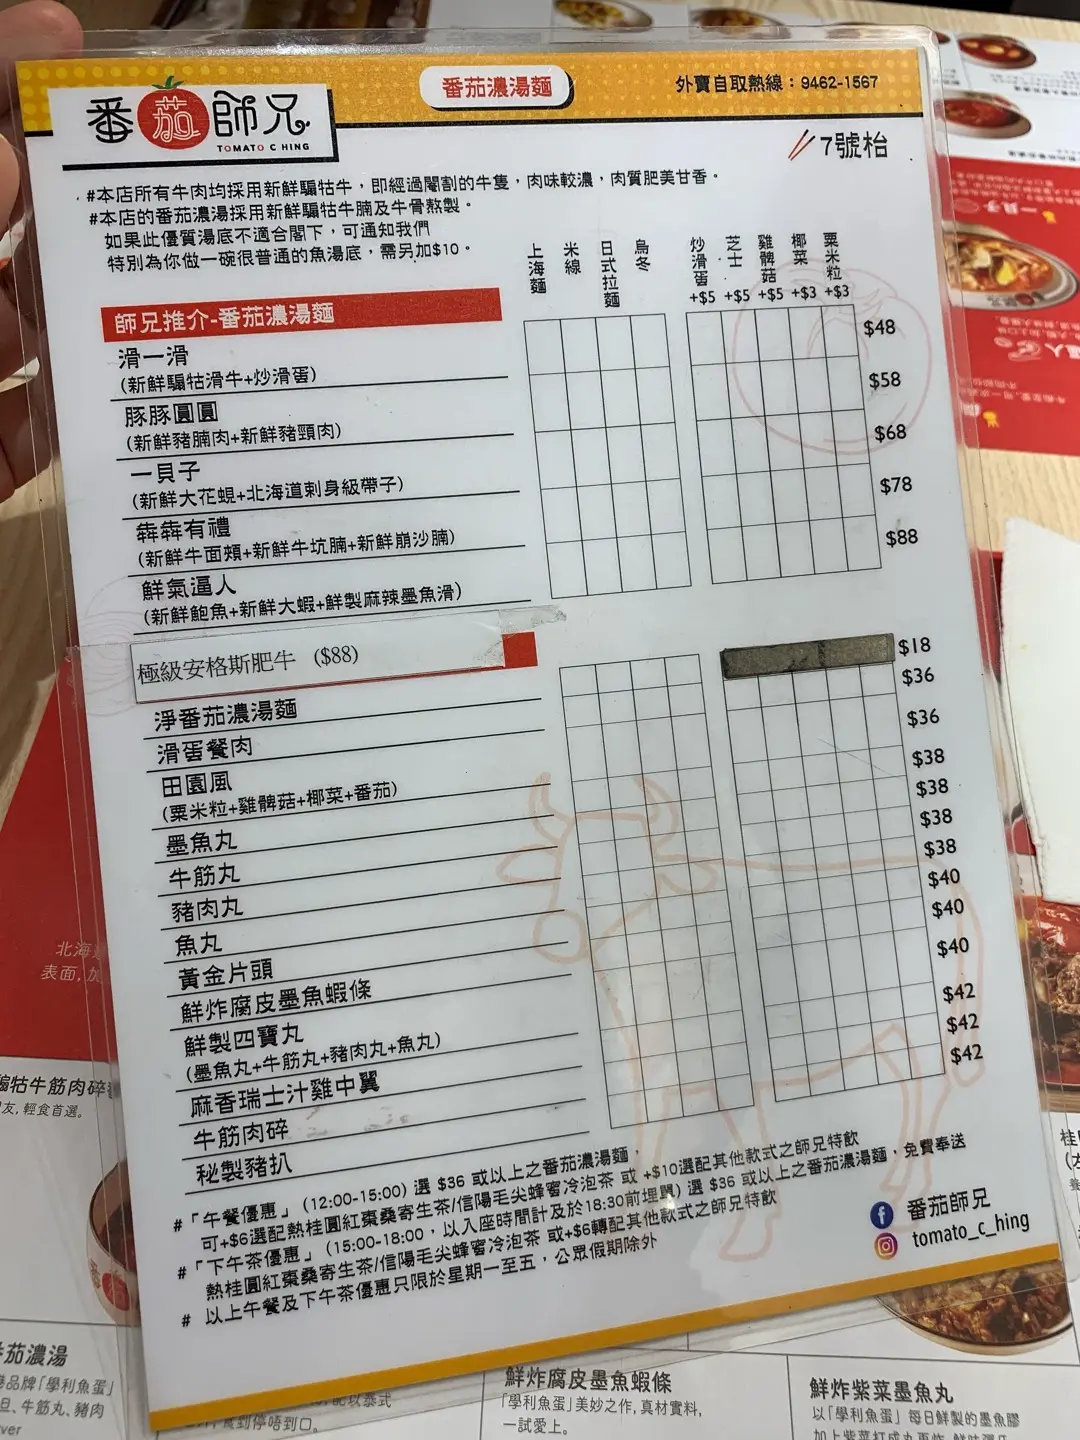 番茄師兄
TOMATO C HING
番茄濃湯麵
外賣自取熱線：9462-1567
7號枱
#本店所有牛肉均採用新鮮騸牯牛，即經過閹割的牛隻，肉味較濃，肉質肥美甘香。
#本店的番茄濃湯採用新鮮騸牯牛腩及牛骨熬製。
如果此優質湯底不適合閣下，可通知我們
特別為你做一碗很普通的魚湯底，需另加$10。
上海麵 米線 日式拉麵 烏冬 炒滑蛋+$5 芝士+$5 雞髀菇+$5 椰菜+$3 粟米粒+$3
師兄推介-番茄濃湯麵
滑一滑 $48
(新鮮騸牯滑牛+炒滑蛋)
豚豚圓圓 $58
(新鮮豬腩肉+新鮮豬頸肉)
一貝子 $68
(新鮮大花蜆+北海道刺身級帶子)
犇犇有禮 $78
(新鮮牛面頰+新鮮牛坑腩+新鮮崩沙腩)
鮮氣逼人 $88
(新鮮鮑魚+新鮮大蝦+鮮製麻辣墨魚滑)
極級安格斯肥牛 ($88)
淨番茄濃湯麵 $18
滑蛋餐肉 $36
田園風 $36
(粟米粒+雞髀菇+椰菜+番茄)
墨魚丸 $38
牛筋丸 $38
豬肉丸 $38
魚丸 $38
黃金片頭 $40
鮮炸腐皮墨魚蝦條 $40
鮮製四寶丸 $40
(墨魚丸+牛筋丸+豬肉丸+魚丸)
麻香瑞士汁雞中翼 $42
牛筋肉碎 $42
秘製豬扒 $42
#「午餐優惠」(12:00-15:00) 選 $36 或以上之番茄濃湯麵，
可+$6選配熱桂圓紅棗桑寄生茶/信陽毛尖蜂蜜冷泡茶 或 +$10選配其他款式之師兄特飲
#「下午茶優惠」(15:00-18:00，以入座時間計及於18:30前埋單) 選 $36 或以上之番茄濃湯麵，免費奉送
熱桂圓紅棗桑寄生茶/信陽毛尖蜂蜜冷泡茶 或+$6轉配其他款式之師兄特飲
# 以上午餐及下午茶優惠只限於星期一至五，公眾假期除外
番茄師兄
tomato_c_hing
一貝子
北海
表面,加
騸牯牛筋肉碎
友,輕食首選。
茄濃湯
品牌「學利魚蛋」
旦、牛筋丸、豬肉
ver
配以泰式
到停唔到口。
鮮炸腐皮墨魚蝦條
「學利魚蛋」美妙之作,真材實料,
一試愛上。
鮮炸紫菜墨魚丸
以「學利魚蛋」每日鮮製的墨魚膠